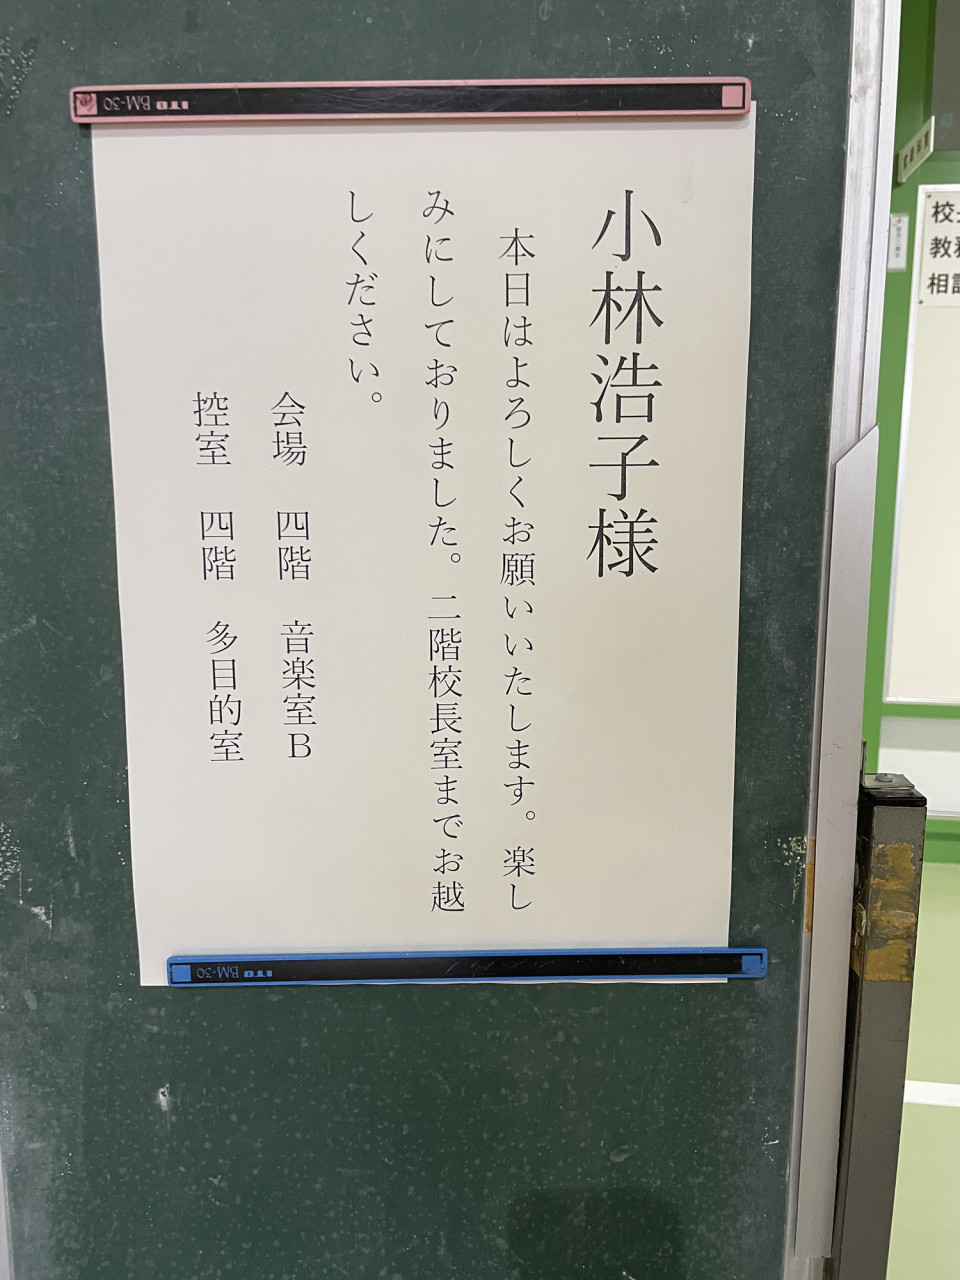 小林浩子様
本日はよろしくお願いいたします。楽し
みにしておりました。二階校長室までお越
しください。
会場　四階　音楽室Ｂ
控室　四階　多目的室
ITO BM-30
ITO BM-30
校長
教務
相談